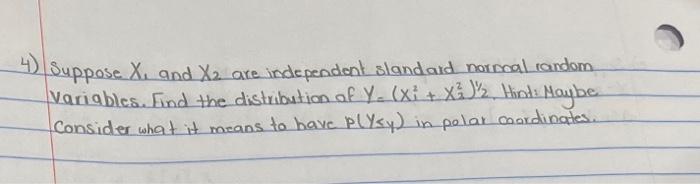 4) Suppose X₁ and X₂ are independent slandard normal random
variables. Find the distribution of Y = (X₁² + X₂²)^1/2. Hint: Maybe
Consider what it means to have P(Y≤y) in polar coordinates.